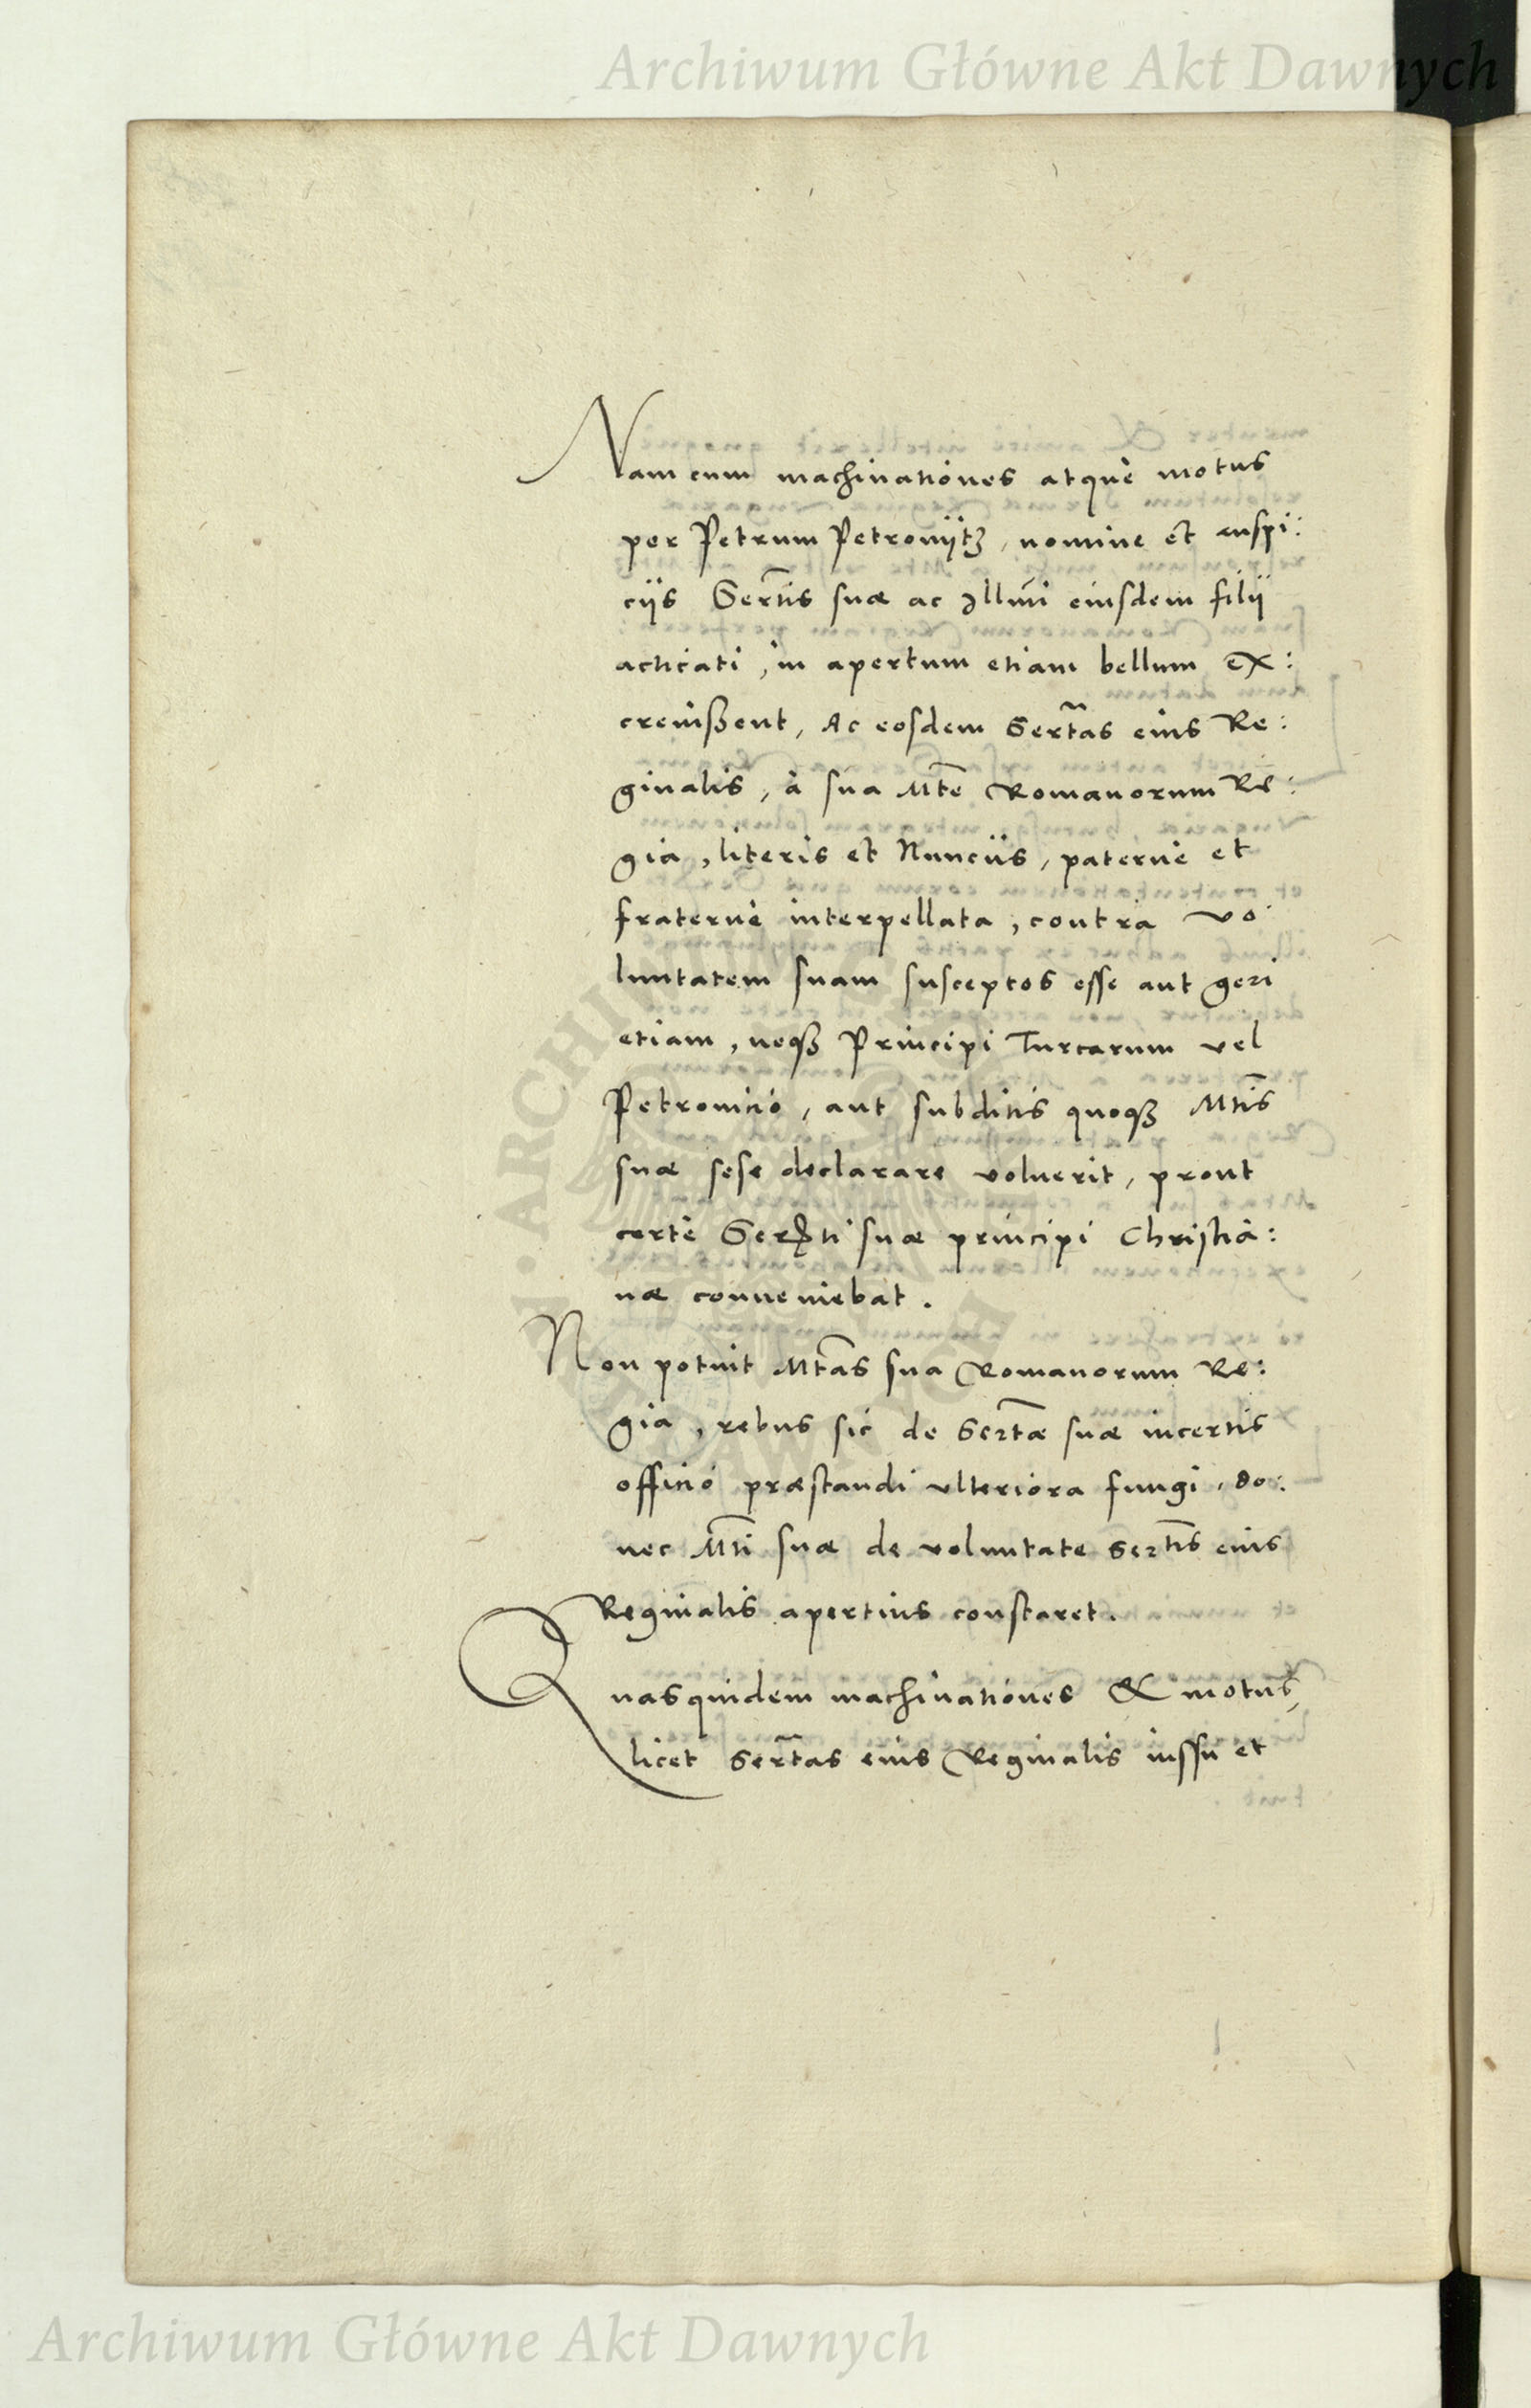 Archiwum Główne Akt Dawnych
Nam cum machinationes atque motus
per Petrum Petroviitz, nomine et auspi:
ciis Sertis suæ ac Illmi eiusdem filii
acticati, in apertum etiam bellum ex:
crevißent, Ac eosdem Sertas eius Re:
ginalis, à sua Mte Romanorum Re:
gia, literis et Nunciis, paternè et
fraternè interpellata, contra vo
luntatem suam susceptos esse aut geri
etiam, neqꝫ Principi Turcarum vel
Petrovicio, aut subditis quoqꝫ Mtis
suæ sese declarare voluerit, prout
certè Serti suæ principi Christia:
næ conveniebat.
Non potuit Mtas sua Romanorum Re:
gia, rebus sic de Sertæ suæ incertis
officio præstandi ulteriora fungi, do:
nec Mti suæ de voluntate Sertis eius
Reginalis apertius constaret.
Quasquidem machinationes & motus,
licet Sertas eius Reginalis iussu et
Archiwum Główne Akt Dawnych